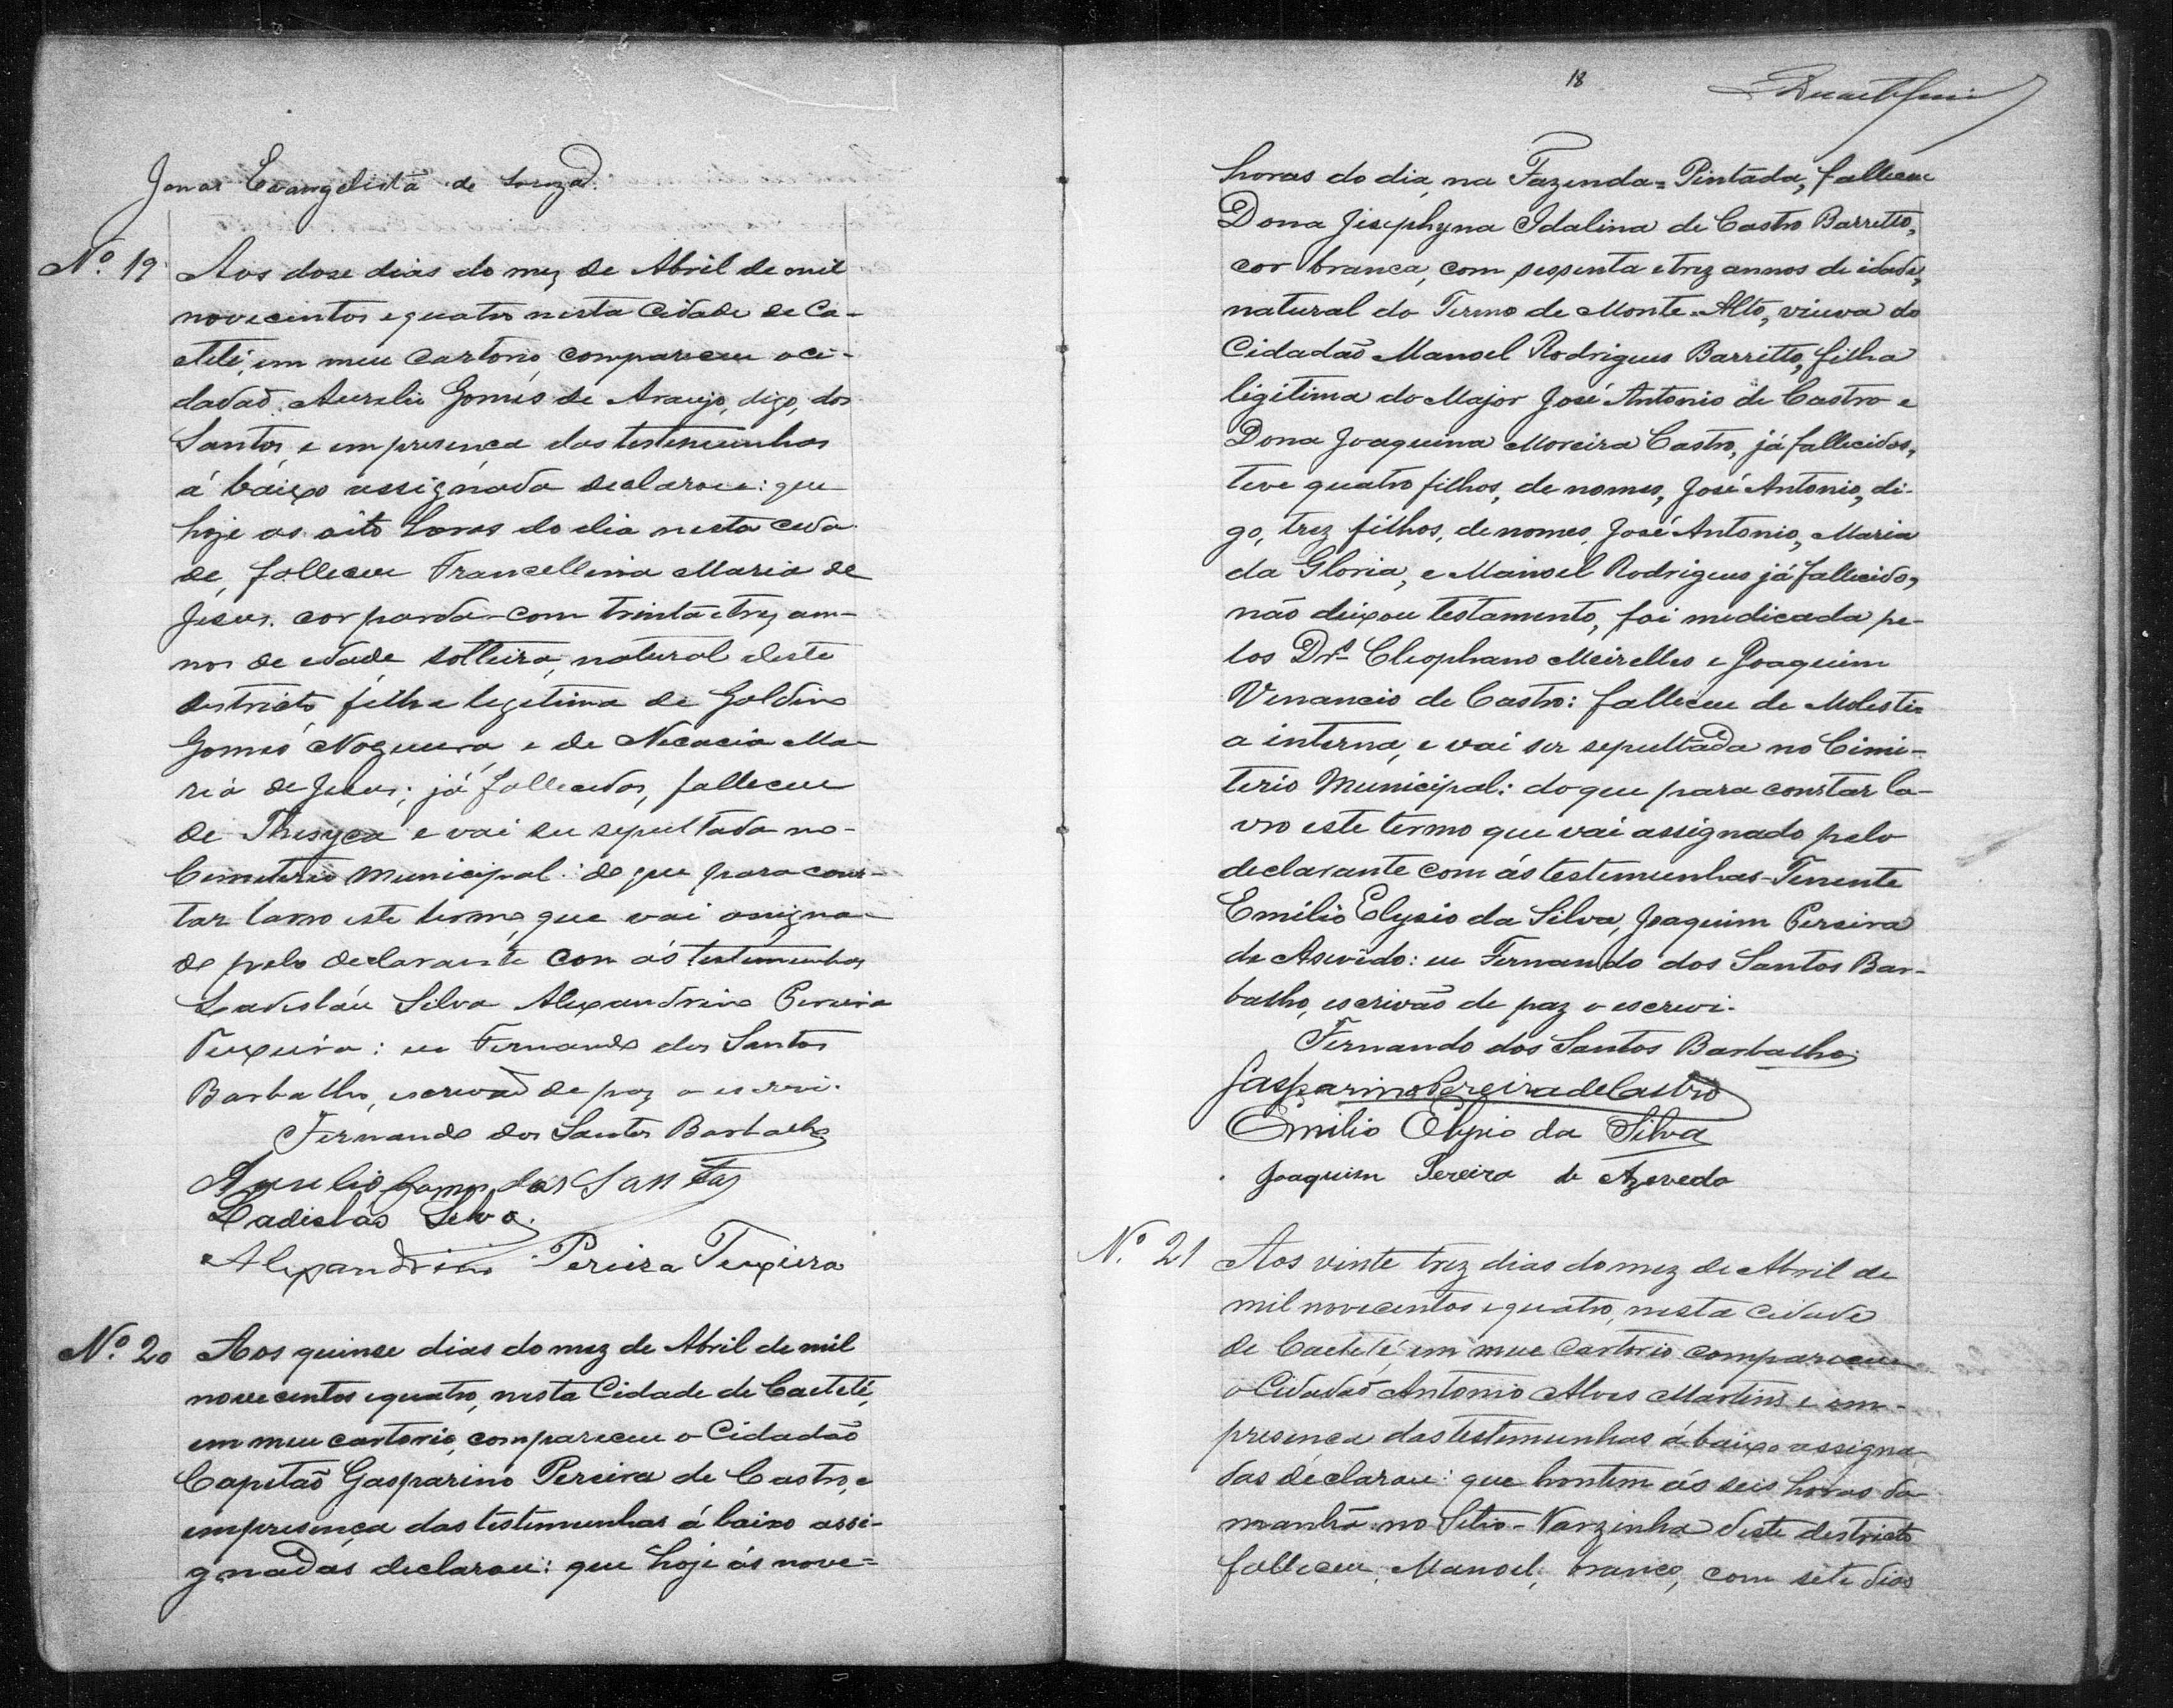 Jonas Evangelista de Souza.
Nº 19 Aos dose dias do mez de Abril de mil
novecentos e quatro nesta Cidade de Ca-
eteté, em meu Cartorio compareceu o ci-
dadaõ Aurelio Gomes de Araujo, digo, dos
Santos, e em presença das testemunhas
á baixo assignada declarou: que
hoje as oito horas do dia nesta cida
de, falleceu Francellina Maria de
Jesus. cor parda com trinta e trez an-
nos de edade solteira, natural deste
destricto filha legitima de Goldino
Gomes Nogueira, e de Necacia Ma-
ria de Jesus; já fallecidos, falleceu
de Thisyca e vai ser sepultada no
Cemeterio Municipal: do que para cons-
tar lavro este termo que vai assigna-
do pelo declarante com ás testemunhas
Ladisláu Silva Alexandrino Pereira
Teixeira: eu Fernando dos Santos
Barbalho, escrivaõ de paz o escrevi.
Fernando dos Santos Barbalho
Aurelio Gomes dos Santos
Ladislao Silva.
Alexandrino Pereira Teixeira
Nº 20 Aos quinse dias do mez de Abril de mil
novecentos e quatro, nesta Cidade de Caeteté,
em meu cartorio, compareceu o Cidadão
Capitaõ Gasparino Pereira de Castro, e
em presença das testemunhas á baixo assi-
gnadas declarou: que hoje ás nove=
18
horas do dia, na Fazenda=Pintada, falleceu
Dona Jisephyna Idalina de Castro Barretto,
cor branca, com sessenta e trez annos de idade,
natural do Termo de Monte-Alto, viuva do
Cidadaõ Manoel Rodrigues Barretto, filha
ligitima do Major José Antonio de Castro e
Dona Joaquina Moreira Castro, já fallecidos,
teve quatro filhos, de nomes, José Antonio, di-
go, trez filhos, de nomes, José Antonio, Maria
da Gloria, e Manoel Rodrigues já fallecido,
não deixou testamento, foi medicada pe-
los Drs. Cleophano Meirelles e Joaquim
Venancio de Castro: falleceu de Molesti=
a interna, e vai ser sepultada no Cimi-
terio Municipal: do que para constar la-
vro este termo que vai assignado pelo
declarante com ás testemunhas Tenente
Emilio Elysio da Silva, Joaquim Pereira
de Asevêdo: eu Fernando dos Santos Bar-
balho, escrivaõ de paz o escrevi.
Fernando dos Santos Barbalho
Gasparino Pereira de Castro
Emilio Elysio da Silva
Joaquim Pereira de Azevedo
Nº 21 Aos vinte trez dias do mez de Abril de
mil novecentos e quatro, nesta cidade
de Caeteté, em meu Cartorio compareceu
o Cidadaõ Antonio Alves Martins e em-
presença das testemunhas á baixo assigna
das declarou: que hontem ás seis horas da
manhã no Sitio-Varzinha deste destricto
falleceu, Manoel; branco, com sete dias